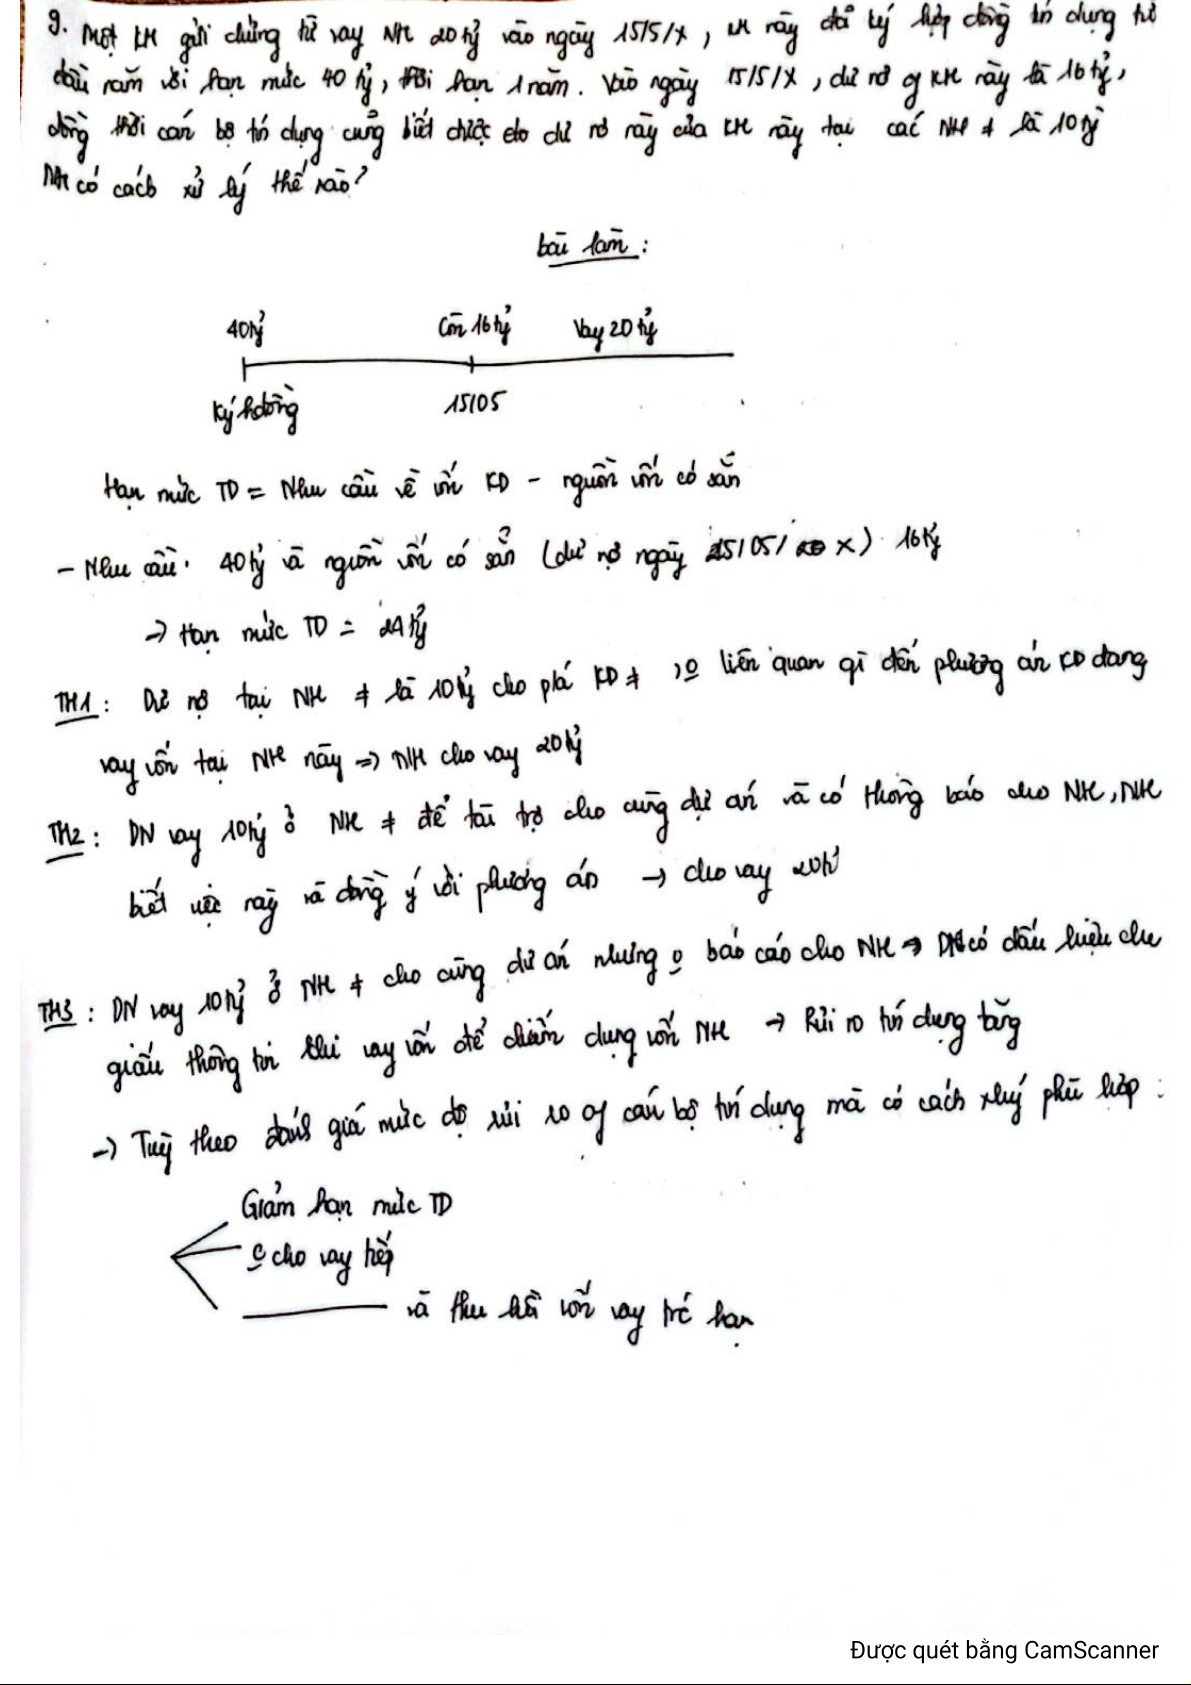 9. Một KH gửi chứng từ vay NH 20 tỷ vào ngày 15/5/X, KH này đã ký hợp đồng tín dụng từ
đầu năm với hạn mức 40 tỷ, thời hạn 1 năm. Vào ngày 15/5/X, dư nợ of KH này là 16 tỷ,
đồng thời cán bộ tín dụng cũng biết được do dư nợ này của KH này tại các NH ≠ là 10 tỷ
NH có cách xử lý thế nào?
bài làm:
40 tỷ Còn 16 tỷ Vay 20 tỷ
Ký hđồng 15/05
Hạn mức TD = Nhu cầu về vốn KD - nguồn vốn có sẵn
- Nhu cầu: 40 tỷ và nguồn vốn có sẵn (dư nợ ngày 15/05/ X) 16 tỷ
→ Hạn mức TD = 24 tỷ
TH1: Dư nợ tại NH ≠ là 10 tỷ cho p/á KD ≠, o liên quan gì đến phương án KD đang
vay vốn tại NH này => NH cho vay 20 tỷ
TH2: DN vay 10 tỷ ở NH ≠ để tài trợ cho cùng dự án và có thông báo cho NH, NH
biết việc này và đồng ý với phương án → cho vay 20 tỷ
TH3: DN vay 10 tỷ ở NH ≠ cho cùng dự án nhưng o báo cáo cho NH → DN có dấu hiệu che
giấu thông tin khi vay vốn để chiếm dụng vốn NH → Rủi ro tín dụng tăng
→ Tuỳ theo đánh giá mức độ rủi ro of cán bộ tín dụng mà có cách xlý phù hợp:
Giảm hạn mức TD
o cho vay tiếp
và thu hồi vốn vay trc hạn
Được quét bằng CamScanner